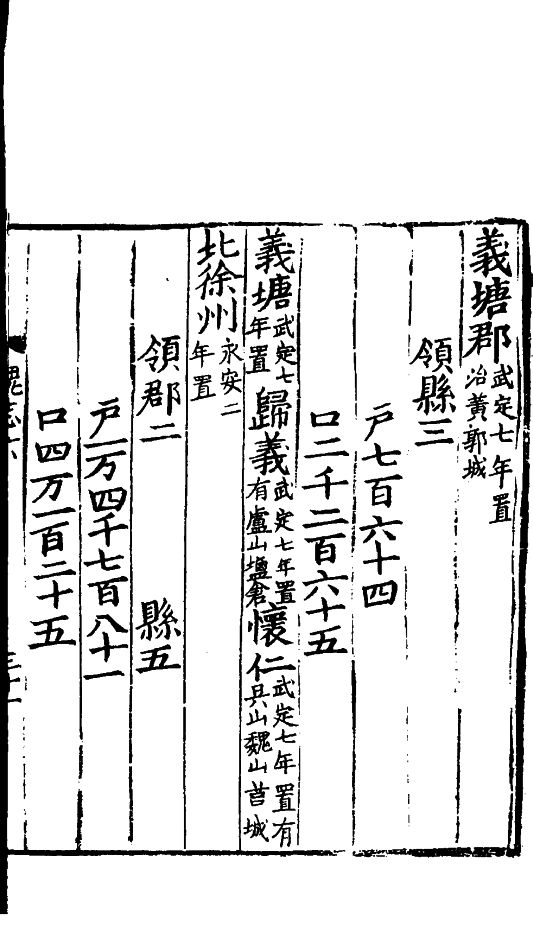 義塘郡武定七年置治黃郭城
領縣三
戶七百六十四
口二千二百六十五
義塘武定七年置歸義武定七年置有盧山鹽倉懷仁武定七年置有吳山魏山莒城
北徐州永安二年置
領郡二 縣五
戶一万四千七百八十一
口四万一百二十五
三十一